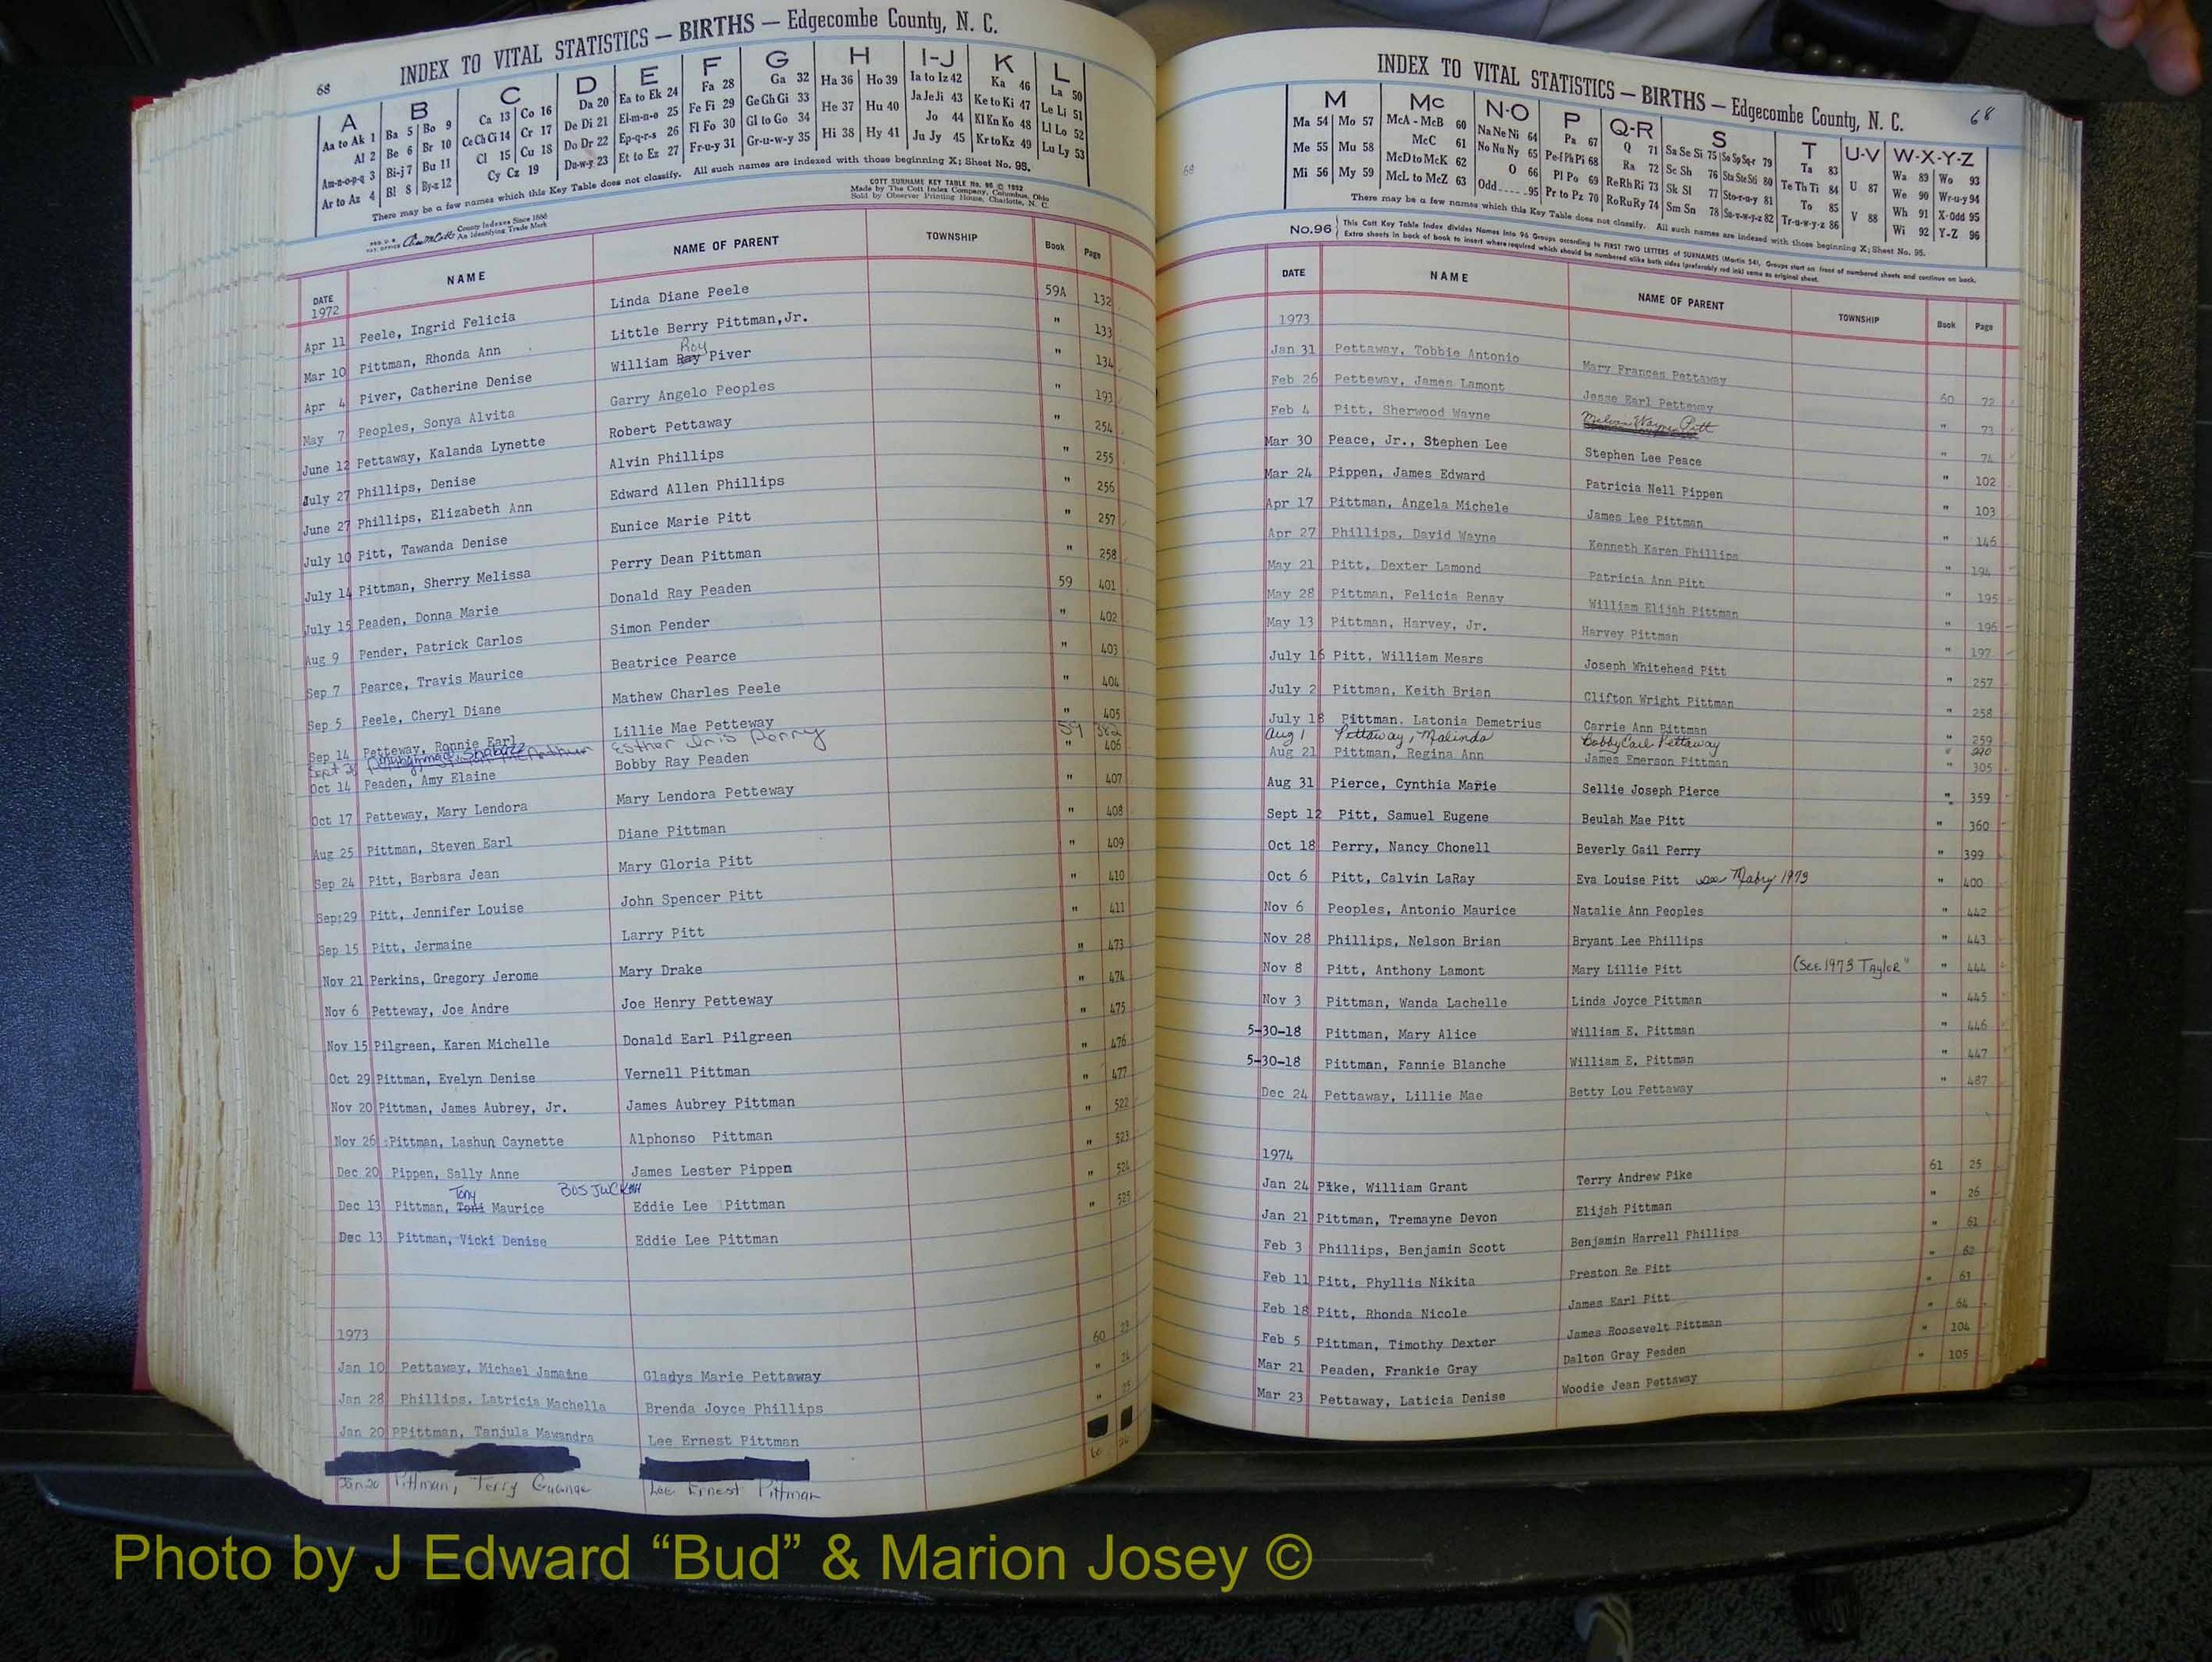 68
INDEX TO VITAL STATISTICS — BIRTHS — Edgecombe County, N. C.
A B C D E F G H I-J K L
Aa to Ak 1 Ba 5 Bo 9 Ca 13 Co 16 Da 20 Ea to Ek 24 Fa 28 Ga 32 Ha 36 Ho 39 Ia to Iz 42 Ka 46 La 50
Al 2 Be 6 Br 10 Ce Ch Ci 14 Cr 17 De Di 21 El-m-n-o 25 Fe Fi 29 Ge Gh Gi 33 He 37 Hu 40 Ja Je Ji 43 Ke to Ki 47 Le Li 51
Am-n-o-p-q 3 Bi-j 7 Bu 11 Cl 15 Cu 18 Do Dr 22 Ep-q-r-s 26 Fl Fo 30 Gl to Go 34 Hi 38 Hy 41 Jo 44 Kl Kn Ko 48 Ll Lo 52
Ar to Az 4 Bl 8 By-z 12 Cy Cz 19 Du-w-y 23 Et to Ez 27 Fr-u-y 31 Gr-u-w-y 35 Ju Jy 45 Kr to Kz 49 Lu Ly 53
There may be a few names which this Key Table does not classify. All such names are indexed with those beginning X; Sheet No. 95.
COTT SURNAME KEY TABLE No. 96 © 1952
Made by The Cott Index Company, Columbus, Ohio
Sold by Observer Printing House, Charlotte, N. C.
County Indexes Since 1888
An Identifying Trade Mark
DATE NAME NAME OF PARENT TOWNSHIP Book Page
1972
Apr 11 Peele, Ingrid Felicia Linda Diane Peele 59A 132
Mar 10 Pittman, Rhonda Ann Little Berry Pittman,Jr. " 133
Roy
Apr 4 Piver, Catherine Denise William Ray Piver " 134
May 7 Peoples, Sonya Alvita Garry Angelo Peoples " 193
June 12 Pettaway, Kalanda Lynette Robert Pettaway " 254
July 27 Phillips, Denise Alvin Phillips " 255
June 27 Phillips, Elizabeth Ann Edward Allen Phillips " 256
July 10 Pitt, Tawanda Denise Eunice Marie Pitt " 257
July 14 Pittman, Sherry Melissa Perry Dean Pittman " 258
July 15 Peaden, Donna Marie Donald Ray Peaden 59 401
Aug 9 Pender, Patrick Carlos Simon Pender " 402
Sep 7 Pearce, Travis Maurice Beatrice Pearce " 403
Sep 5 Peele, Cheryl Diane Mathew Charles Peele " 404
Sep 14 Petteway, Ronnie Earl Lillie Mae Petteway " 405
Sept Esther Iris Perry 59 382
Oct 14 Peaden, Amy Elaine Bobby Ray Peaden " 406
Oct 17 Petteway, Mary Lendora Mary Lendora Petteway " 407
Aug 25 Pittman, Steven Earl Diane Pittman " 408
Sep 24 Pitt, Barbara Jean Mary Gloria Pitt " 409
Sep:29 Pitt, Jennifer Louise John Spencer Pitt " 410
Sep 15 Pitt, Jermaine Larry Pitt " 411
Nov 21 Perkins, Gregory Jerome Mary Drake " 473
Nov 6 Petteway, Joe Andre Joe Henry Petteway " 474
Nov 15 Pilgreen, Karen Michelle Donald Earl Pilgreen " 475
Oct 29 Pittman, Evelyn Denise Vernell Pittman " 476
Nov 20 Pittman, James Aubrey, Jr. James Aubrey Pittman " 477
Nov 26 :Pittman, Lashun Caynette Alphonso Pittman " 522
Dec 20 Pippen, Sally Anne James Lester Pippen " 523
Tony
Dec 13 Pittman, Toni Maurice Eddie Lee Pittman " 524
Dec 13 Pittman, Vicki Denise Eddie Lee Pittman " 525
1973
Jan 10 Pettaway, Michael Jamaine Gladys Marie Pettaway 60 23
Jan 28 Phillips, Latricia Machella Brenda Joyce Phillips " 24
Jan 20 PPittman, Tanjula Mawandra Lee Ernest Pittman " 25
Jan 20 Pittman, Terry Lee Ernest Pittman 60 26
68
INDEX TO VITAL STATISTICS — BIRTHS — Edgecombe County, N. C.
68
M Mc N-O P Q-R S T U-V W-X-Y-Z
Ma 54 Mo 57 McA - McB 60 Na Ne Ni 64 Pa 67 Q 71 Sa Se Si 75 So Sp Sq-r 79 Ta 83 Wa 89 Wo 93
Me 55 Mu 58 McC 61 No Nu Ny 65 Pe-f Ph Pi 68 Ra 72 Sc Sh 76 Sta Ste Sti 80 Te Th Ti 84 U 87 We 90 Wr-u-y 94
McD to McK 62 O 66 Pl Po 69 Re Rh Ri 73 Sk Sl 77 Sto-r-u-y 81 To 85 Wh 91 X-Odd 95
Mi 56 My 59 McL to McZ 63 Odd 95 Pr to Pz 70 Ro Ru Ry 74 Sm Sn 78 Su-v-w-y-z 82 Tr-u-w-y-z 86 V 88 Wi 92 Y-Z 96
There may be a few names which this Key Table does not classify. All such names are indexed with those beginning X; Sheet No. 95.
No.96 This Cott Key Table Index divides Names into 96 Groups according to FIRST TWO LETTERS of SURNAMES (Martin 54), Groups start on front of numbered sheets and continue on back.
Extra sheets in back of book to insert where required which should be numbered alike both sides (preferably red ink) same as original sheet.
DATE NAME NAME OF PARENT TOWNSHIP Book Page
1973
Jan 31 Pettaway, Tobbie Antonio Mary Frances Pettaway 60 72
Feb 26 Petteway, James Lamont Jesse Earl Petteway " 73
Feb 4 Pitt, Sherwood Wayne Melvin Wayne Pitt " 74
Mar 30 Peace, Jr., Stephen Lee Stephen Lee Peace " 102
Mar 24 Pippen, James Edward Patricia Nell Pippen " 103
Apr 17 Pittman, Angela Michele James Lee Pittman " 146
Apr 27 Phillips, David Wayne Kenneth Karen Phillips " 194
May 21 Pitt, Dexter Lamond Patricia Ann Pitt " 195
May 28 Pittman, Felicia Renay William Elijah Pittman " 196
May 13 Pittman, Harvey, Jr. Harvey Pittman " 197
July 16 Pitt, William Mears Joseph Whitehead Pitt " 257
July 2 Pittman, Keith Brian Clifton Wright Pittman " 258
July 18 Pittman. Latonia Demetrius Carrie Ann Pittman " 259
Aug 1 Pettaway, Malinda Bobby Earl Pettaway "
Aug 21 Pittman, Regina Ann James Emerson Pittman " 305
Aug 31 Pierce, Cynthia Marie Sellie Joseph Pierce " 359
Sept 12 Pitt, Samuel Eugene Beulah Mae Pitt " 360
Oct 18 Perry, Nancy Chonell Beverly Gail Perry " 399
Oct 6 Pitt, Calvin LaRay Eva Louise Pitt see Mabry 1973 " 400
Nov 6 Peoples, Antonio Maurice Natalie Ann Peoples " 442
Nov 28 Phillips, Nelson Brian Bryant Lee Phillips " 443
Nov 8 Pitt, Anthony Lamont Mary Lillie Pitt (See 1973 Taylor" " 444
Nov 3 Pittman, Wanda Lachelle Linda Joyce Pittman " 445
5-30-18 Pittman, Mary Alice William E. Pittman " 446
5-30-18 Pittman, Fannie Blanche William E. Pittman " 447
Dec 24 Pettaway, Lillie Mae Betty Lou Pettaway " 487
1974
Jan 24 Pike, William Grant Terry Andrew Pike 61 25
Jan 21 Pittman, Tremayne Devon Elijah Pittman " 26
Feb 3 Phillips, Benjamin Scott Benjamin Harrell Phillips " 61
Feb 11 Pitt, Phyllis Nikita Preston Re Pitt " 62
Feb 18 Pitt, Rhonda Nicole James Earl Pitt " 63
Feb 5 Pittman, Timothy Dexter James Roosevelt Pittman " 64
Mar 21 Peaden, Frankie Gray Dalton Gray Peaden " 104
Mar 23 Pettaway, Laticia Denise Woodie Jean Pettaway " 105
Photo by J Edward “Bud” & Marion Josey ©